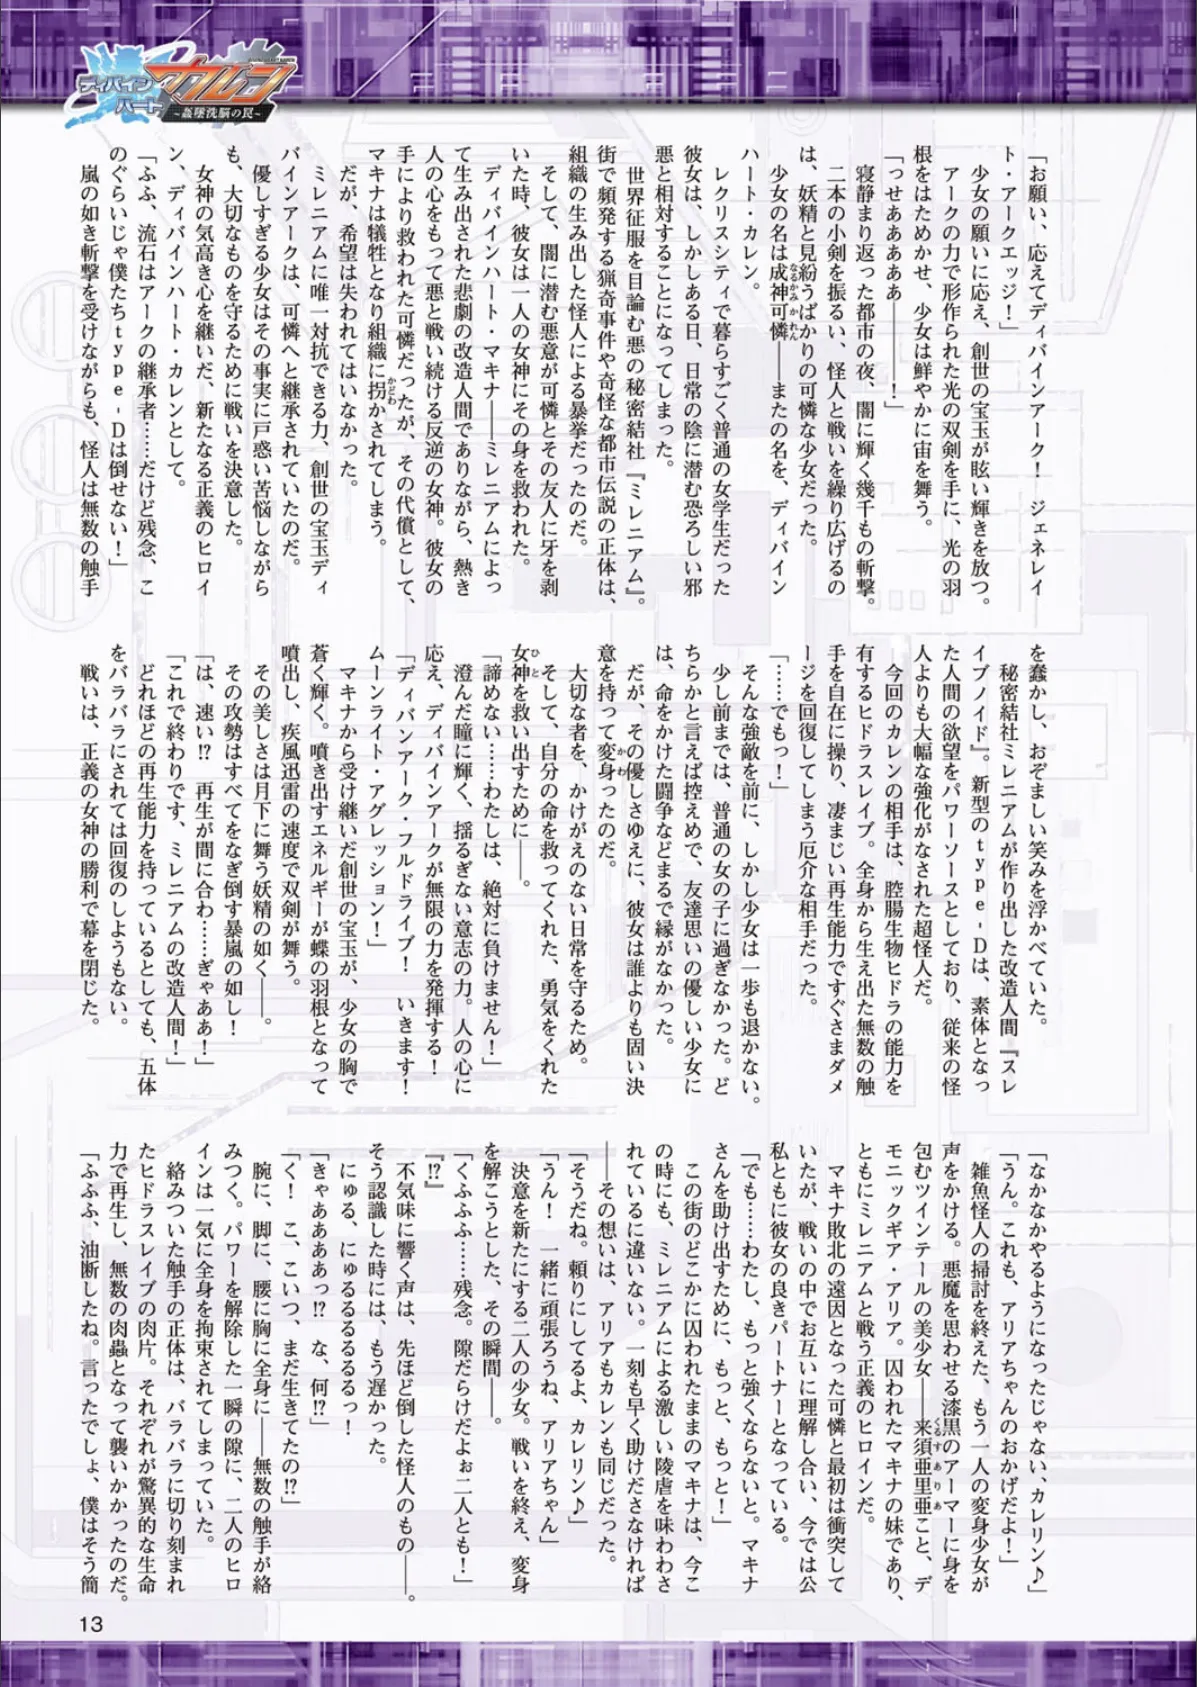 ディバイン
ハート
カレン
～姦墜洗脳の罠～
「お願い、応えてディバインアーク！　ジェネレイ
ト・アークエッジ！」
少女の願いに応え、創世の宝玉が眩い輝きを放つ。
アークの力で形作られた光の双剣を手に、光の羽
根をはためかせ、少女は鮮やかに宙を舞う。
「っせあああああ――――！」
寝静まり返った都市の夜、闇に輝く幾千もの斬撃。
二本の小剣を振るい、怪人と戦いを繰り広げるの
は、妖精と見紛うばかりの可憐な少女だった。
少女の名は成神可憐――またの名を、ディバイン
なるかみかれん
ハート・カレン。
レクリスシティで暮らすごく普通の女学生だった
彼女は、しかしある日、日常の陰に潜む恐ろしい邪
悪と相対することになってしまった。
世界征服を目論む悪の秘密結社『ミレニアム』。
街で頻発する猟奇事件や奇怪な都市伝説の正体は、
組織の生み出した怪人による暴挙だったのだ。
そして、闇に潜む悪意が可憐とその友人に牙を剥
いた時、彼女は一人の女神にその身を救われた。
ディバインハート・マキナ――ミレニアムによっ
て生み出された悲劇の改造人間でありながら、熱き
人の心をもって悪と戦い続ける反逆の女神。彼女の
手により救われた可憐だったが、その代償として、
マキナは犠牲となり組織に拐かされてしまう。
かどわ
だが、希望は失われてはいなかった。
ミレニアムに唯一対抗できる力、創世の宝玉ディ
バインアークは、可憐へと継承されていたのだ。
優しすぎる少女はその事実に戸惑い苦悩しながら
も、大切なものを守るために戦いを決意した。
女神の気高き心を継いだ、新たなる正義のヒロイ
ン、ディバインハート・カレンとして。
「ふふ、流石はアークの継承者……だけど残念、こ
のぐらいじゃ僕たちtype‐Dは倒せない！」
嵐の如き斬撃を受けながらも、怪人は無数の触手
を蠢かし、おぞましい笑みを浮かべていた。
秘密結社ミレニアムが作り出した改造人間『スレ
イブノイド』。新型のtype‐Dは、素体となっ
た人間の欲望をパワーソースとしており、従来の怪
人よりも大幅な強化がなされた超怪人だ。
今回のカレンの相手は、腔腸生物ヒドラの能力を
有するヒドラスレイブ。全身から生え出た無数の触
手を自在に操り、凄まじい再生能力ですぐさまダメ
ージを回復してしまう厄介な相手だった。
「……でもっ！」
そんな強敵を前に、しかし少女は一歩も退かない。
少し前までは、普通の女の子に過ぎなかった。ど
ちらかと言えば控えめで、友達思いの優しい少女に
は、命をかけた闘争などまるで縁がなかった。
だが、その優しさゆえに、彼女は誰よりも固い決
意を持って変身ったのだ。
かわ
大切な者を、かけがえのない日常を守るため。
そして、自分の命を救ってくれた、勇気をくれた
女神を救い出すために――。
ひと
「諦めない……わたしは、絶対に負けません！」
澄んだ瞳に輝く、揺るぎない意志の力。人の心に
応え、ディバインアークが無限の力を発揮する！
「ディバンアーク・フルドライブ！　いきます！
ムーンライト・アグレッション！」
マキナから受け継いだ創世の宝玉が、少女の胸で
蒼く輝く。噴き出すエネルギーが蝶の羽根となって
噴出し、疾風迅雷の速度で双剣が舞う。
その美しさは月下に舞う妖精の如く――。
その攻勢はすべてをなぎ倒す暴嵐の如し！
「は、速い⁉　再生が間に合わ……ぎゃああ！」
「これで終わりです、ミレニアムの改造人間！」
どれほどの再生能力を持っているとしても、五体
をバラバラにされては回復のしようもない。
戦いは、正義の女神の勝利で幕を閉じた。
「なかなかやるようになったじゃない、カレリン♪」
「うん。これも、アリアちゃんのおかげだよ！」
雑魚怪人の掃討を終えた、もう一人の変身少女が
声をかける。悪魔を思わせる漆黒のアーマーに身を
包むツインテールの美少女――来須亜里亜こと、デ
くるすありあ
モニックギア・アリア。囚われたマキナの妹であり、
ともにミレニアムと戦う正義のヒロインだ。
マキナ敗北の遠因となった可憐と最初は衝突して
いたが、戦いの中でお互いに理解し合い、今では公
私ともに彼女の良きパートナーとなっている。
「でも……わたし、もっと強くならないと。マキナ
さんを助け出すために、もっと、もっと！」
この街のどこかに囚われたままのマキナは、今こ
の時にも、ミレニアムによる激しい陵虐を味わわさ
れているに違いない。一刻も早く助けださなければ
――その想いは、アリアもカレンも同じだった。
「そうだね。頼りにしてるよ、カレリン♪」
「うん！　一緒に頑張ろうね、アリアちゃん」
決意を新たにする二人の少女。戦いを終え、変身
を解こうとした、その瞬間――。
「くふふふ……残念。隙だらけだよぉ二人とも！」
『⁉』
不気味に響く声は、先ほど倒した怪人のもの――。
そう認識した時には、もう遅かった。
にゅる、にゅるるるるるるっ！
「きゃああああっ⁉　な、何⁉」
「く！　こ、こいつ、まだ生きてたの⁉」
腕に、脚に、腰に胸に全身に――無数の触手が絡
みつく。パワーを解除した一瞬の隙に、二人のヒロ
インは一気に全身を拘束されてしまっていた。
絡みついた触手の正体は、バラバラに切り刻まれ
たヒドラスレイブの肉片。それぞれが驚異的な生命
力で再生し、無数の肉蟲となって襲いかかったのだ。
「ふふふ、油断したね。言ったでしょ、僕はそう簡
13